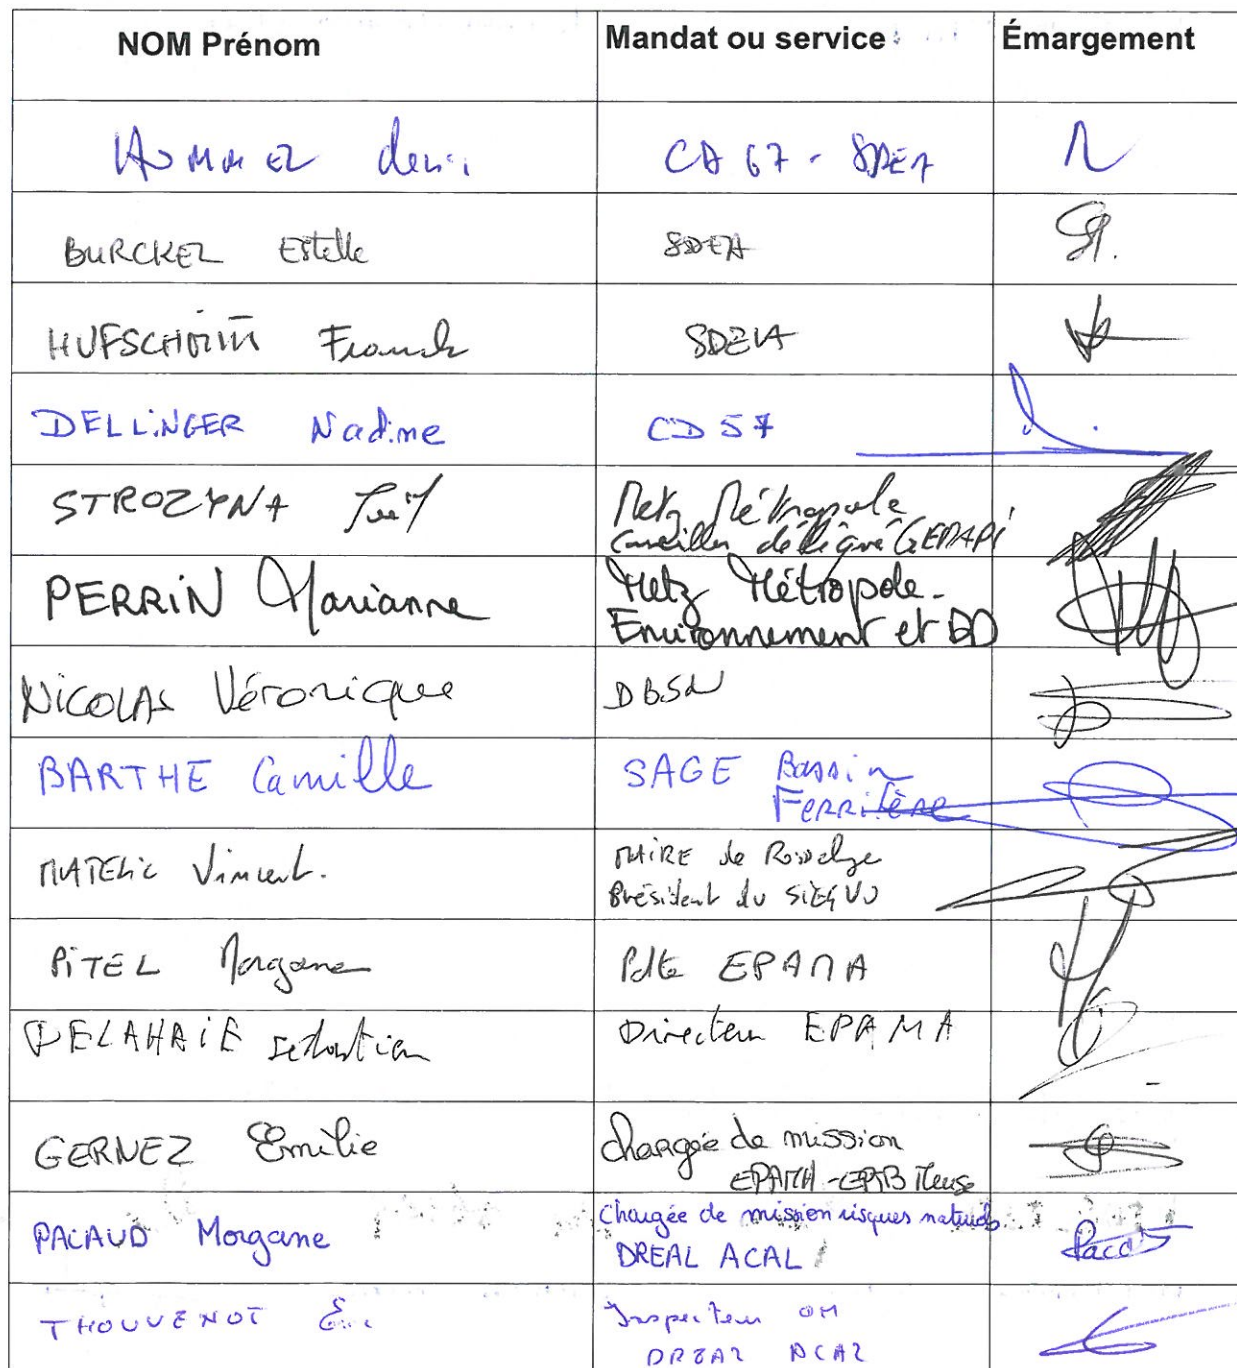 NOM Prénom Mandat ou service Émargement
HOMMEL Denis CD 67 - SDEA
BURCKEL Estelle SDEA
HUFSCHMITT Franck SDEA
DELLINGER Nadine CD 57
STROZYNA Metz Métropole
Conseiller délégué GEMAPI
PERRIN Marianne Metz Métropole -
Environnement et DD
NICOLAS Véronique DBSN
BARTHE Camille SAGE Bassin
Ferrifère
MATELIC Vincent. MAIRE de Rosselange
Président du SIEGVO
PITEL Morgane Pdte EPAMA
DELAHAIE Sébastien Directeur EPAMA
GERNEZ Emilie chargée de mission
EPAMA - EPTB Meuse
PACAUD Morgane Chargée de mission risques naturels
DREAL ACAL
THOUVENOT Inspecteur OH
DREAL ACAL